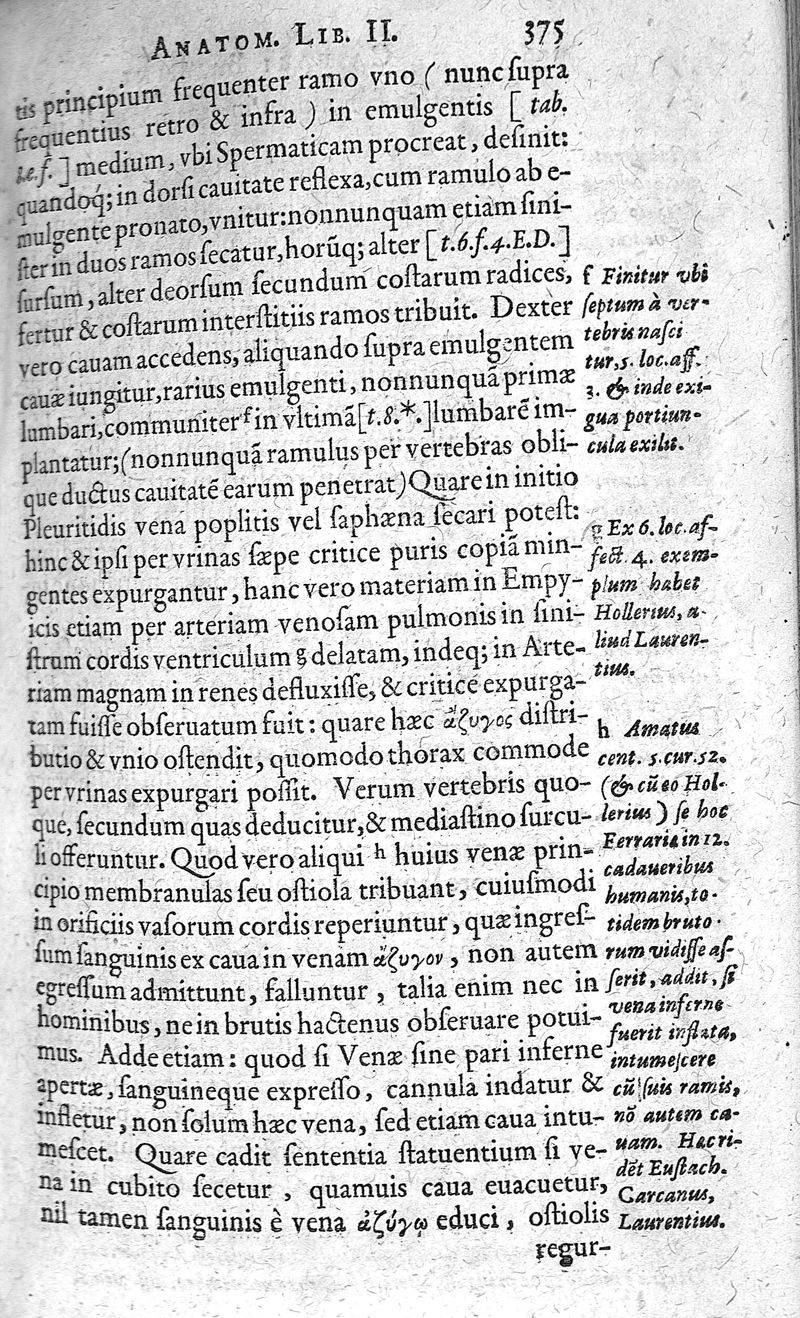 ANATOM. LIB. II. 375
tis principium frequenter ramo vno ( nunc ſupra
frequentius retro & infra ) in emulgentis [ tab.
i.e.f. ] medium, vbi Spermaticam procreat, deſinit:
quandoq́; in dorſi cauitate reflexa, cum ramulo ab e-
mulgente pronato, vnitur: nonnunquam etiam ſini-
ſter in duos ramos ſecatur, horũq; alter [ t.6.f.4.E.D. ]
ſurſum, alter deorſum ſecundum coſtarum radices,
fertur & coſtarum interſtitiis ramos tribuit. Dexter
vero cauam accedens, aliquando ſupra emulgentem
cauæ iungitur, rarius emulgenti, nonnunquã primæ
lumbari, communiter f in vltimã [t.8.*.] lumbarẽ im-
plantatur; (nonnunquã ramulus per vertebras obli-
que ductus cauitatẽ earum penetrat) Quare in initio
Pleuritidis vena poplitis vel ſaphæna ſecari poteſt:
hinc & ipſi per vrinas ſæpe critice puris copiã min-
gentes expurgantur, hanc vero materiam in Empy-
icis etiam per arteriam venoſam pulmonis in ſini-
ſtrum cordis ventriculum g delatam, indeq; in Arte-
riam magnam in renes defluxiſſe, & critice expurga-
tam fuiſſe obſeruatum fuit: quare hæc ἄζυγος diſtri-
butio & vnio oſtendit, quomodo thorax commode
per vrinas expurgari poſſit. Verum vertebris quo-
que, ſecundum quas deducitur, & mediaſtino ſurcu-
li offeruntur. Quod vero aliqui h huius venæ prin-
cipio membranulas ſeu oſtiola tribuant, cuiuſmodi
in orificiis vaſorum cordis reperiuntur, quæ ingreſ-
ſum ſanguinis ex caua in venam ἄζυγον, non autem
egreſſum admittunt, falluntur, talia enim nec in
hominibus, ne in brutis hactenus obſeruare potui-
mus. Adde etiam: quod ſi Venæ ſine pari inferne
apertæ, ſanguineque expreſſo, cannula indatur &
infletur, non ſolum hæc vena, ſed etiam caua intu-
meſcet. Quare cadit ſententia ſtatuentium ſi ve-
na in cubito ſecetur, quamuis caua euacuetur,
nil tamen ſanguinis è vena ἀζύγῳ educi, oſtiolis
regur-
f Finitur vbi
ſeptum à ver-
tebris naſci
tur, 5. loc. aff.
3. & inde exi-
gua portiun-
cula exilit.
g Ex 6. loc. af-
fect. 4. exem-
plum habet
Hollerius, a-
liud Lauren-
tius.
h Amatus
cent. 5. cur. 52.
(& cũ eo Hol-
lerius) ſe hoc
Ferrariæ in 12.
cadaueribus
humanis, to-
tidem bruto-
rum vidiſſe aſ-
ſerit, addit, ſi
vena inferne
fuerit inflata,
intumeſcere
cũ ſuis ramis,
nõ autem ca-
uam. Hæc ri-
dẽt Euſtach.
Carcanus,
Laurentius.